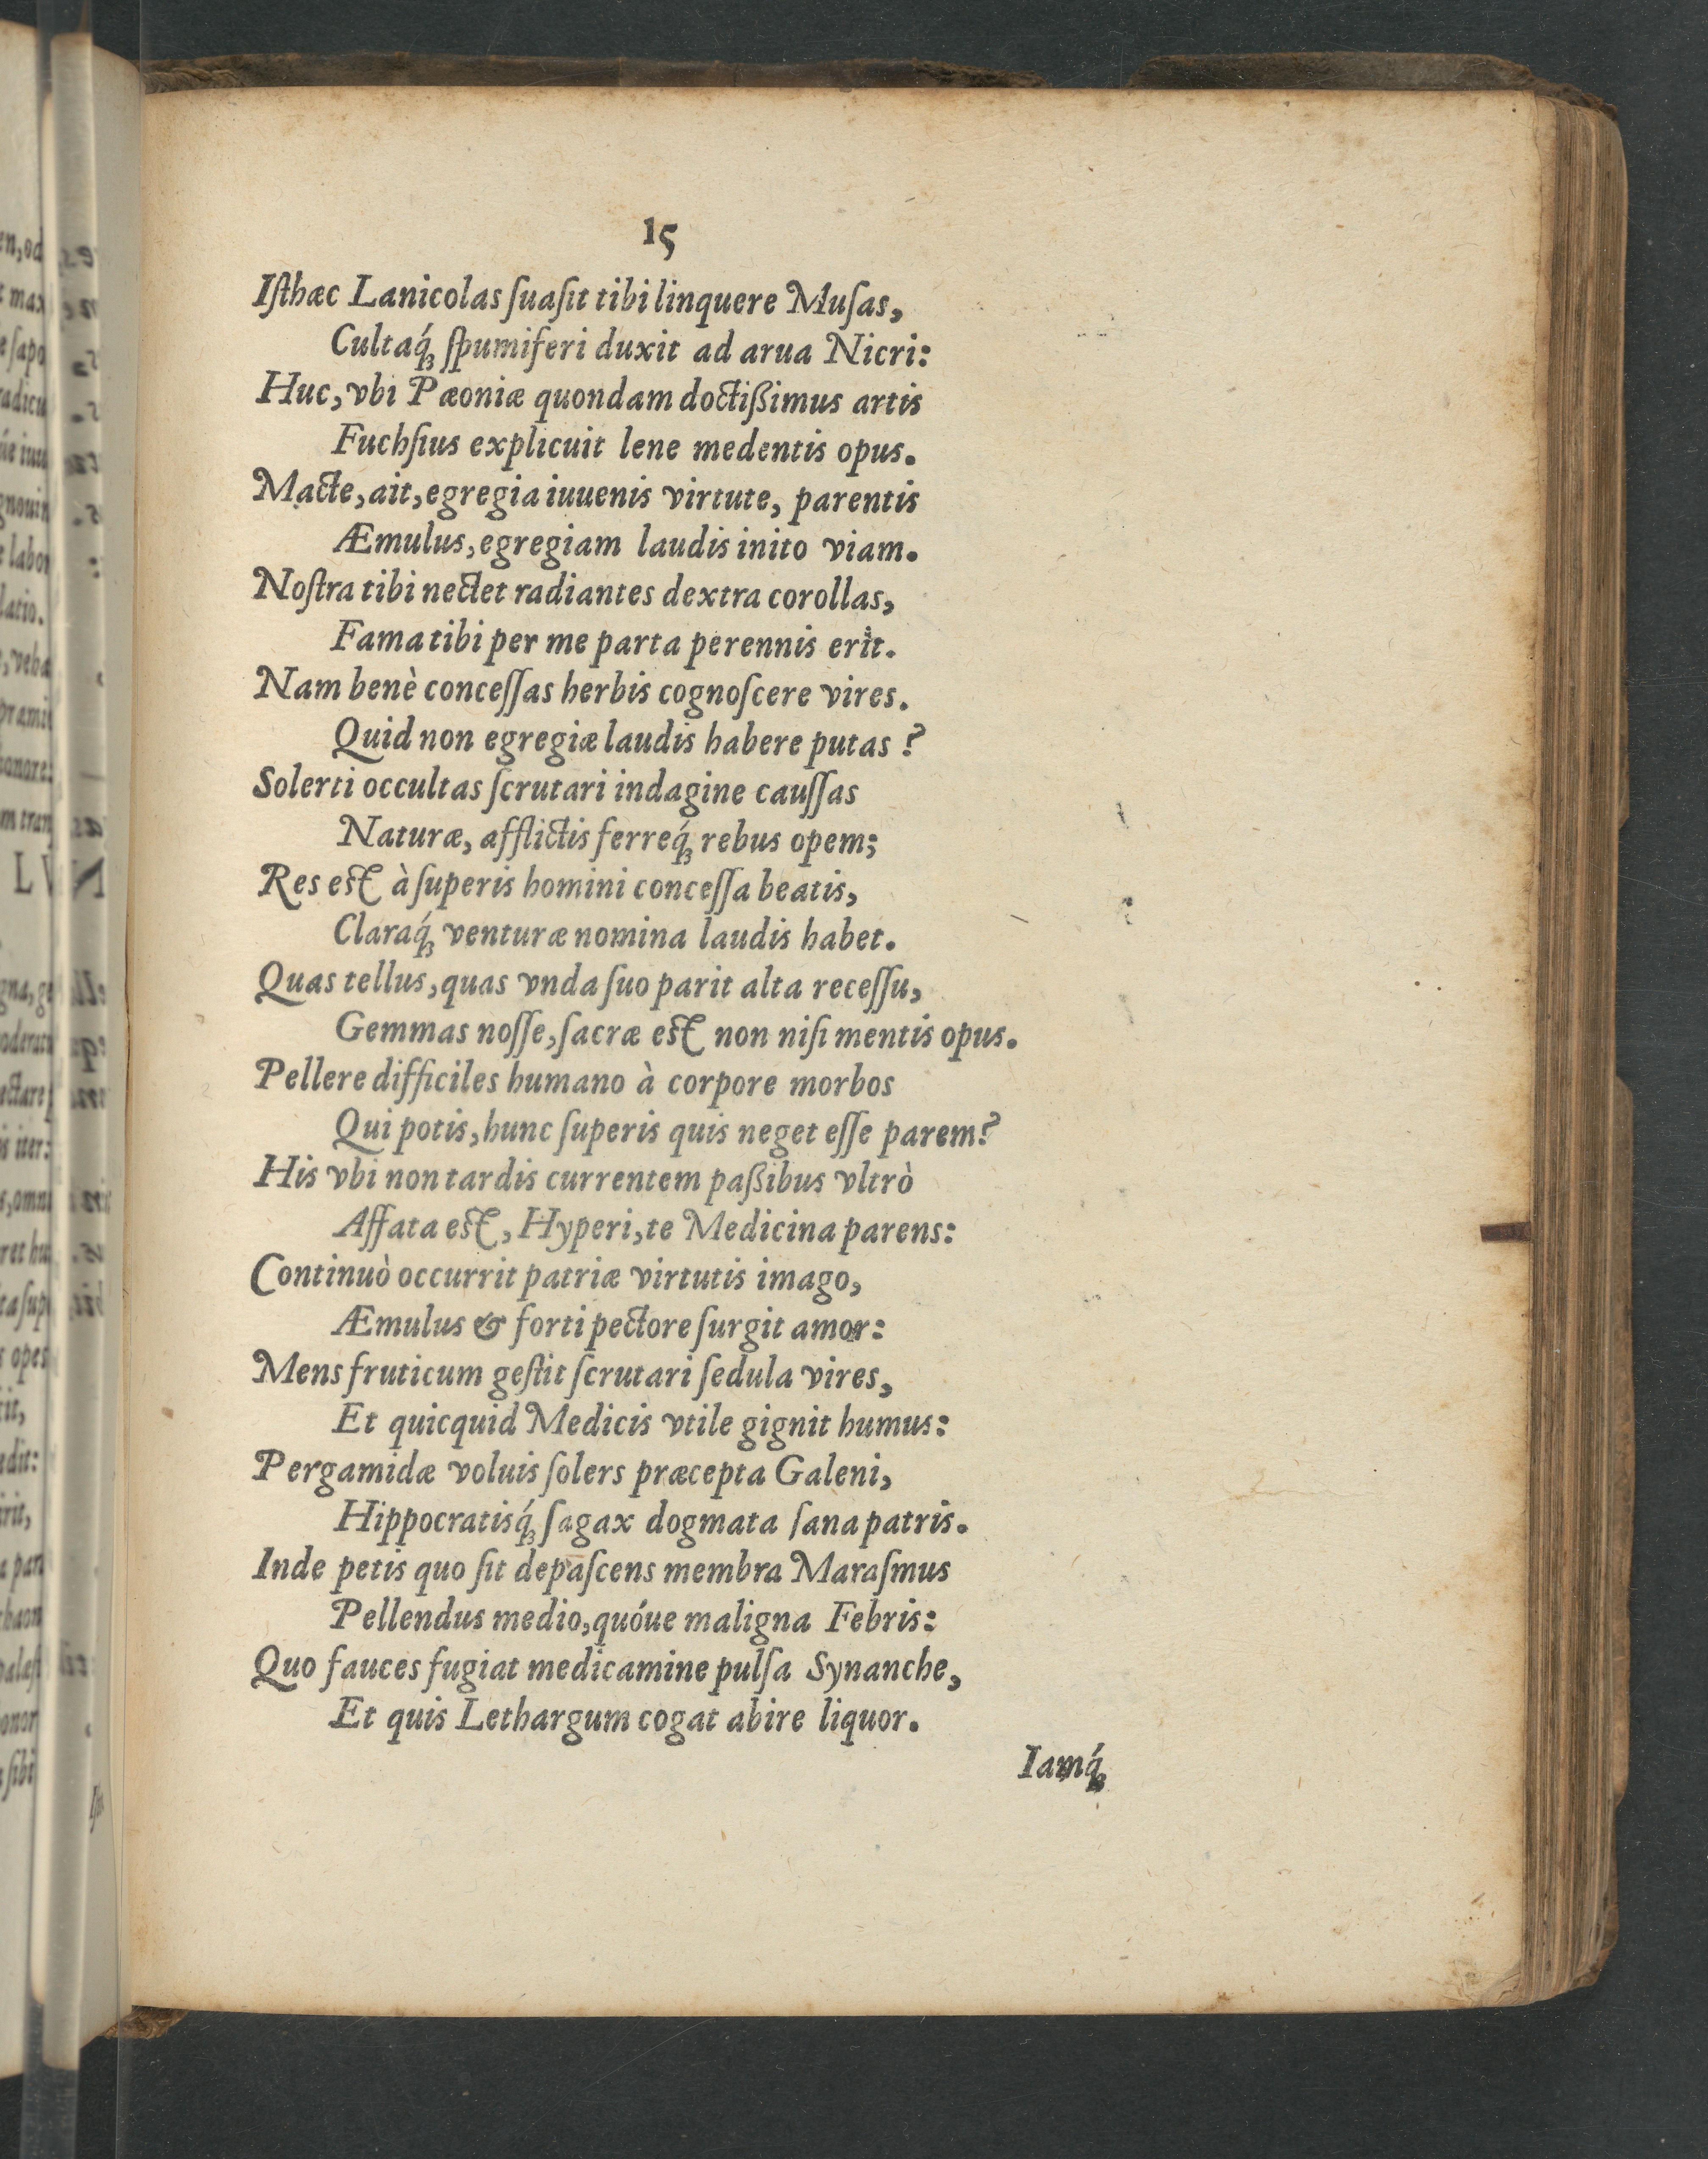 15
Iſthæc Lanicolas ſuaſit tibi linquere Muſas,
Cultaq́ꝫ ſpumiferi duxit ad arua Nicri:
Huc, vbi Pæoniæ quondam doctißimus artis
Fuchſius explicuit lene medentis opus.
Macte, ait, egregia iuuenis virtute, parentis
Æmulus, egregiam laudis inito viam.
Noſtra tibi nectet radiantes dextra corollas,
Fama tibi per me parta perennis erit.
Nam benè conceſſas herbis cognoſcere vires.
Quid non egregiæ laudis habere putas?
Solerti occultas ſcrutari indagine cauſſas
Naturæ, afflictis ferreq́ꝫ rebus opem;
Res est à ſuperis homini conceſſa beatis,
Claraq́ꝫ venturæ nomina laudis habet.
Quas tellus, quas vnda ſuo parit alta receſſu,
Gemmas noſſe, ſacræ est non niſi mentis opus.
Pellere difficiles humano à corpore morbos
Qui potis, hunc ſuperis quis neget eſſe parem?
His vbi non tardis currentem paßibus vltrò
Affata est, Hyperi, te Medicina parens:
Continuò occurrit patriæ virtutis imago,
Æmulus & forti pectore ſurgit amor:
Mens fruticum geſtit ſcrutari ſedula vires,
Et quicquid Medicis vtile gignit humus:
Pergamidæ voluis ſolers præcepta Galeni,
Hippocratisq́ꝫ ſagax dogmata ſana patris.
Inde petis quo ſit depaſcens membra Maraſmus
Pellendus medio, quóue maligna Febris:
Quo fauces fugiat medicamine pulſa Synanche,
Et quis Lethargum cogat abire liquor.
Iamq́ꝫ